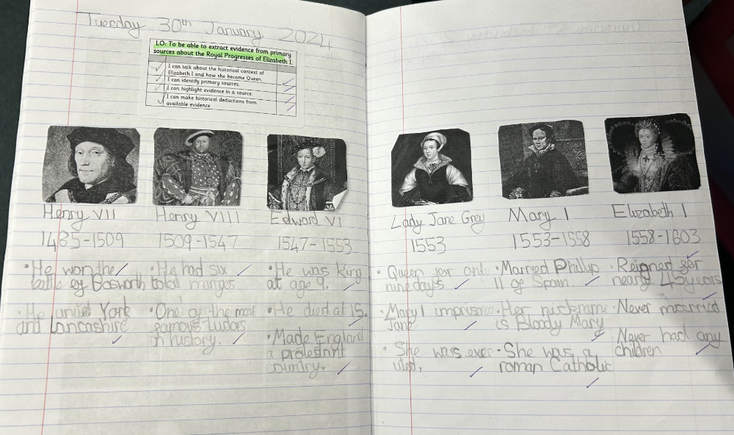 Tuesday 30th January 2024
LO: To be able to extract evidence from primary
sources about the Royal Progresses of Elizabeth I.
I can talk about the historical context of
Elizabeth I and how she became Queen.
I can identify primary sources.
I can highlight evidence in a source
I can make historical deductions from
available evidence
Henry VII
1485-1509
• He won the
battle of Bosworth
• He united York
and Lancashire
Henry VIII
1509-1547
• He had six
total marriges
• One of the most
famous Tudors
in history.
Edward VI
1547-1553
• He was King
at age 9.
• He died at 15.
• Made England
a protestant
country.
Lady Jane Grey
1553
• Queen for onl
nine days
• Mary I imprisone
Jane
• She was exec
uted.
Mary I
1553-1558
• Married Phillip
II of Spain
• Her nickname
is Bloody Mary
• She was a
roman Catholic
Elizabeth I
1558-1603
• Reigned for
nearly 45 years
Never married
Never had any
children